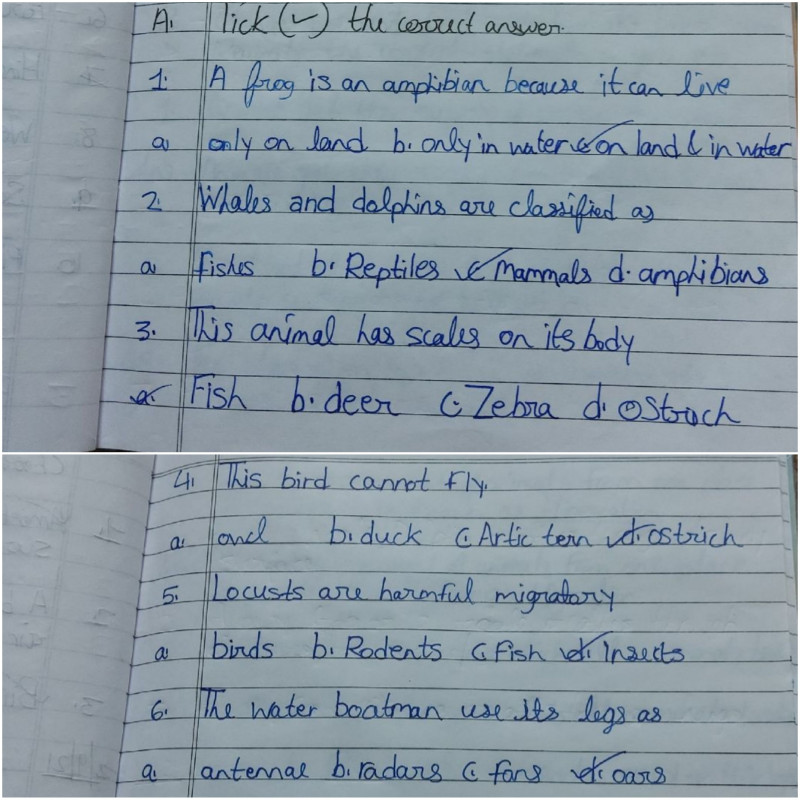 A. Tick (✓) the correct answer.
1. A frog is an amphibian because it can live
a only on land b. only in water ✓c on land & in water
2. Whales and dolphins are classified as
a fishes b. Reptiles ✓c Mammals d. amphibians
3. This animal has scales on its body
✓a Fish b. deer c. Zebra d. Ostrach
4. This bird cannot fly.
a. owl b. duck c. Artic tern ✓d. ostrich
5. Locusts are harmful migratory
a birds b. Rodents c. fish ✓d. Insects
6. The water boatman use its legs as
a. antennae b. radars c. fans ✓d. oars